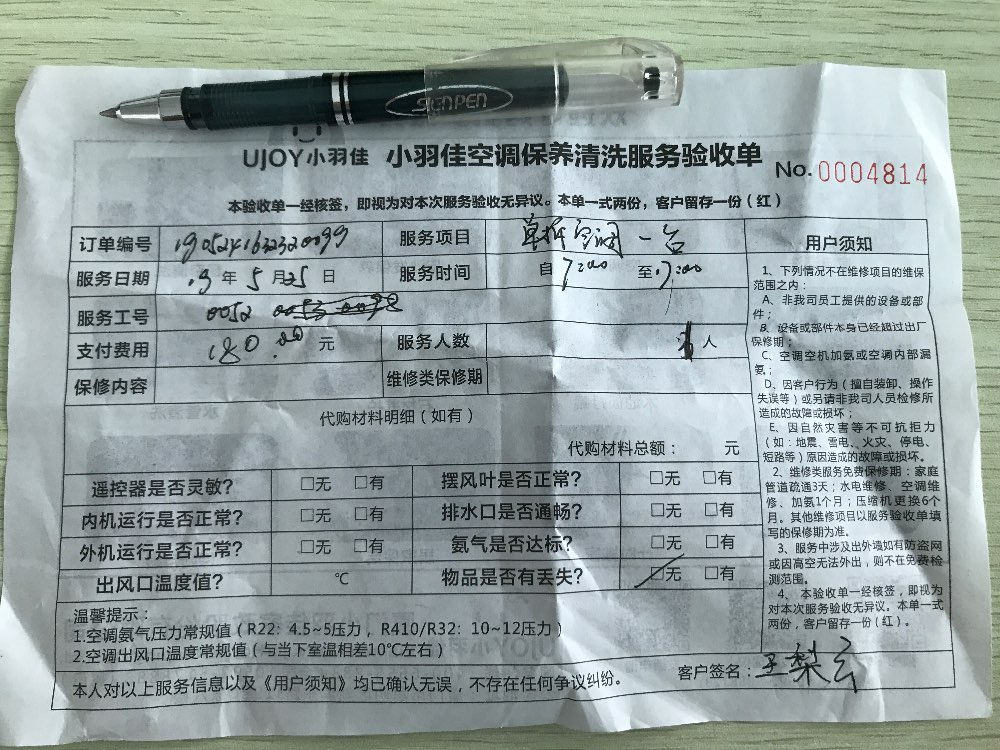 SIGNPEN
UJOY小羽佳 小羽佳空调保养清洗服务验收单 No.0004814
本验收单一经核签，即视为对本次服务验收无异议。本单一式两份，客户留存一份（红）
订单编号 服务项目 单拆空调一台
服务日期 19年5月25日 服务时间 自17:00 至17:00
服务工号 0052
支付费用 180.00元 服务人数 1人
保修内容 维修类保修期
代购材料明细（如有）
代购材料总额： 元
遥控器是否灵敏? □无 □有 摆风叶是否正常? □无 □有
内机运行是否正常? □无 □有 排水口是否通畅? □无 □有
外机运行是否正常? □无 □有 氨气是否达标? □无 □有
出风口温度值? ℃ 物品是否有丢失? □无 □有
温馨提示：
1.空调氨气压力常规值（R22：4.5~5压力，R410/R32：10~12压力）
2.空调出风口温度常规值（与当下室温相差10℃左右）
本人对以上服务信息以及《用户须知》均已确认无误，不存在任何争议纠纷。
客户签名：王梨云
用户须知
1、下列情况不在维修项目的维保
范围之内：
A、非我司员工提供的设备或部
件；
B、设备或部件本身已经超过出厂
保修期；
C、空调空机加氨或空调内部漏
氨；
D、因客户行为（擅自装卸、操作
失误等）或另请非我司人员检修所
造成的故障或损坏；
E、因自然灾害等不可抗拒力
（如：地震、雪电、火灾、停电、
短路等）原因造成的故障或损坏。
2、维修类服务免费保修期：家庭
管道疏通3天；水电维修、空调维
修、加氨1个月；压缩机更换6个
月。其他维修项目以服务验收单填
写的保修期为准。
3、服务中涉及出外墙如有防盗网
或因高空无法外出，则不在免费检
测范围。
4、本验收单一经核签，即视为
对本次服务验收无异议。本单一式
两份，客户留存一份（红）。